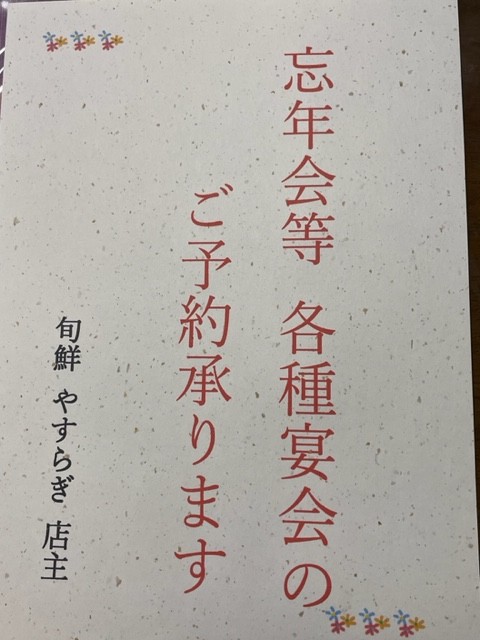 忘年会等 各種宴会の
ご予約承ります
旬鮮 やすらぎ 店主